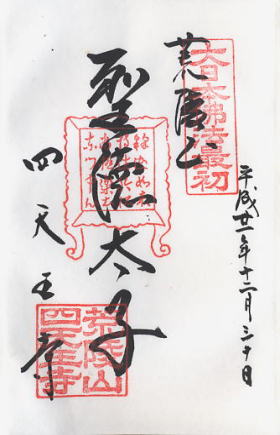 平成廿一年十二月三十日
大日本佛法最初
荒陵山
聖徳太子
四天王寺
荒陵山
四天王寺